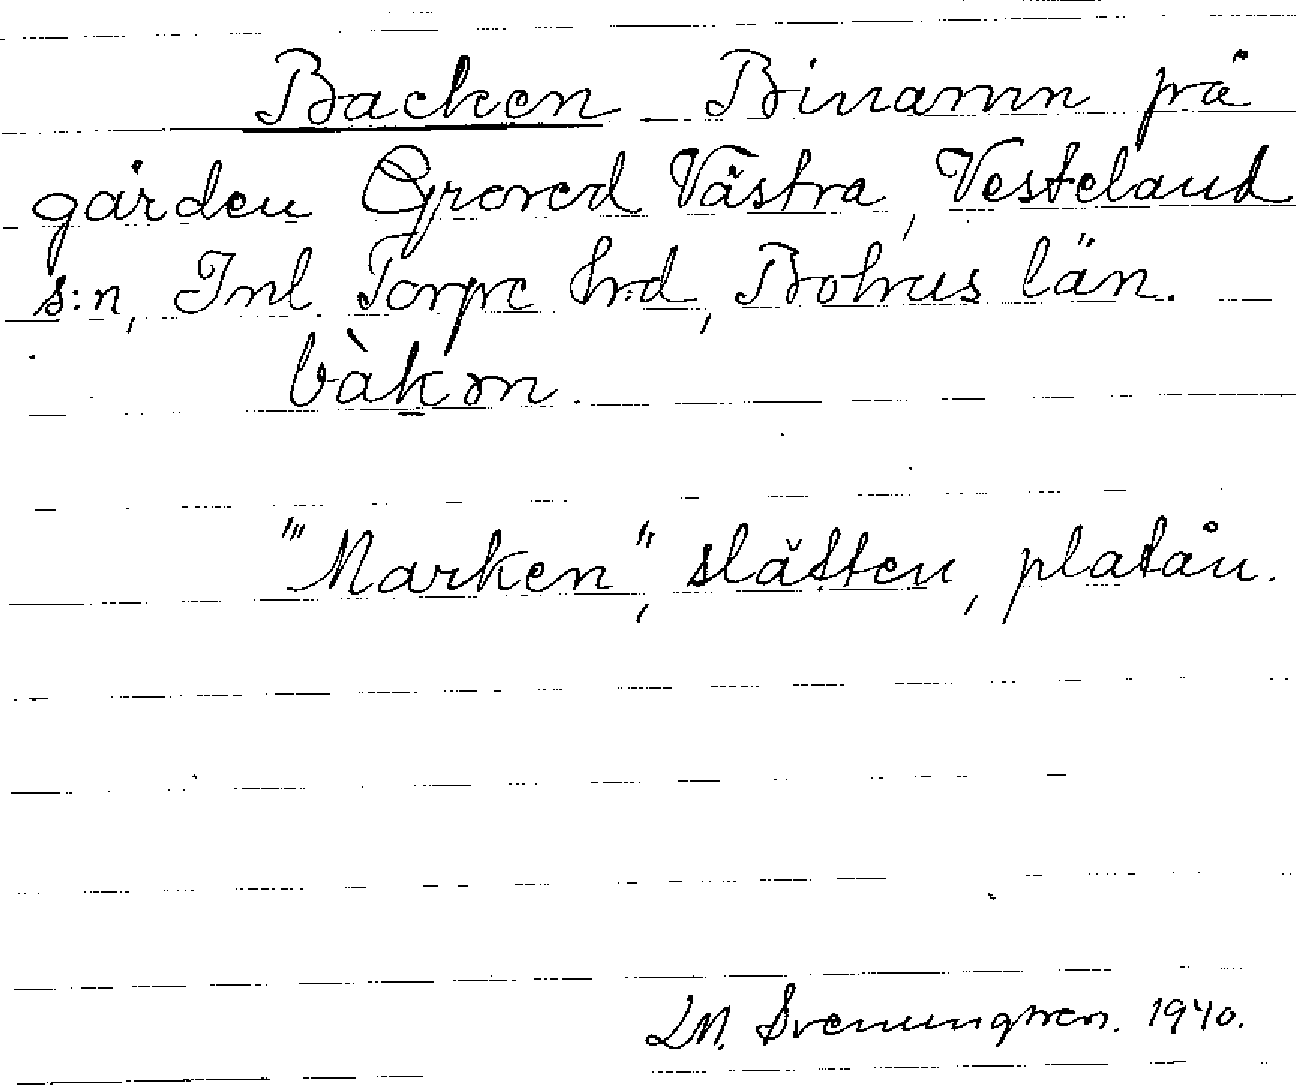 Backen Binamn på
gården Grored Västra, Vesteland
s:n, Inl. Torpe hrd, Bohus län.
bàkɷn.
"Marken", slätten, platån.
LM. Svenungsson. 1940.